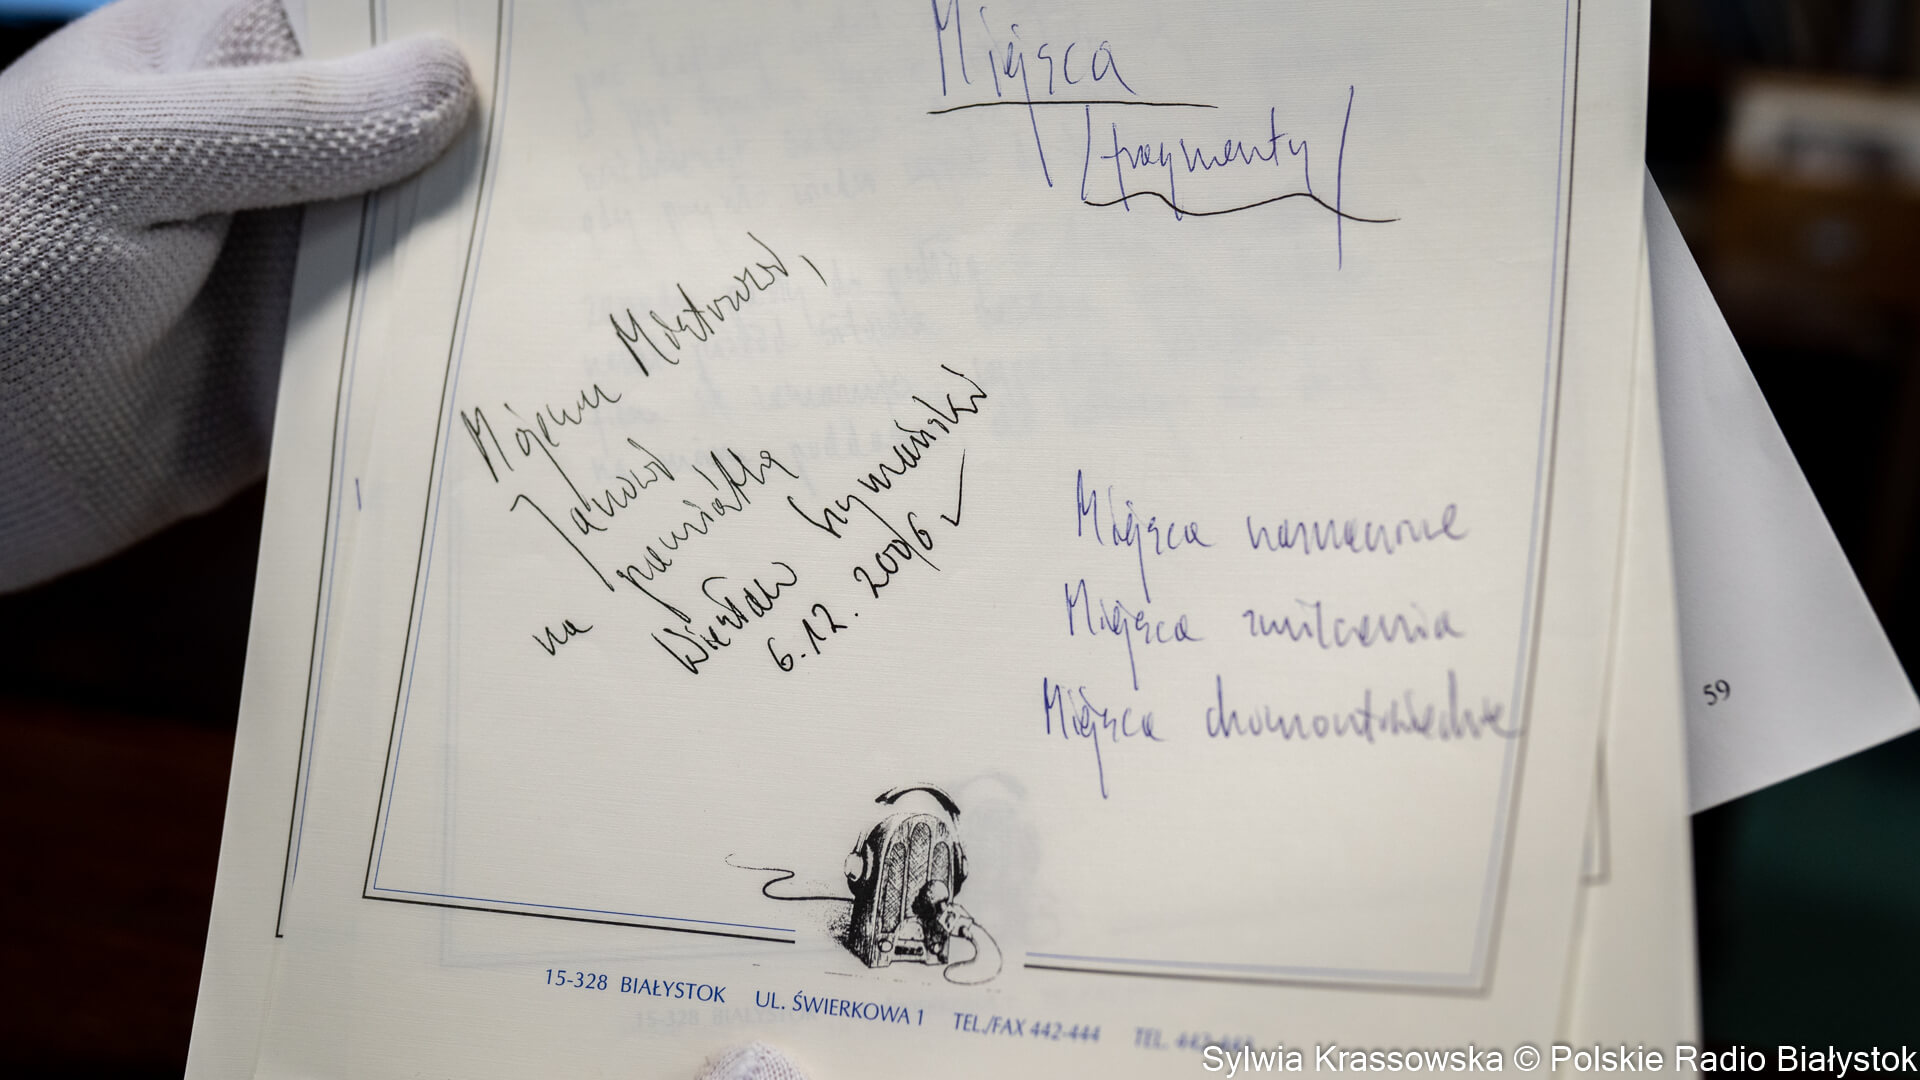 Miejsca
/fragmenty/
Mojemu Mistrzowi,
Janowi
na pamiątkę
Wiesław Szymański
6.12.2006
Miejsca nasnute
Miejsca zmilczenia
Miejsca
59
15-328 BIAŁYSTOK UL. ŚWIERKOWA 1 TEL./FAX 442-444 TEL.
Sylwia Krassowska © Polskie Radio Białystok